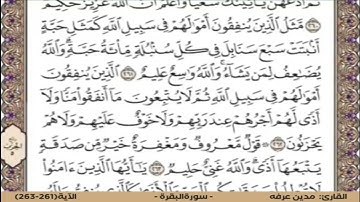 ثم ادعهن يأتينك سعيا واعلم أن الله عزيز حكيم
٢٦٠ مثل الذين ينفقون أمولهم في سبيل الله كمثل حبة
أنبتت سبع سنابل في كل سنبلة مائة حبة والله
يضعف لمن يشاء والله وسع عليم ٢٦١ الذين ينفقون
أمولهم في سبيل الله ثم لا يتبعون ما أنفقوا منا ولا
أذى لهم أجرهم عند ربهم ولا خوف عليهم ولا هم
يحزنون ٢٦٢ قول معروف ومغفرة خير من صدقة
يتبعها أذى والله غني حليم ٢٦٣ يأيها الذين ءامنوا
القارئ: مدين عرفه - سورة البقرة - الآية(261-263)